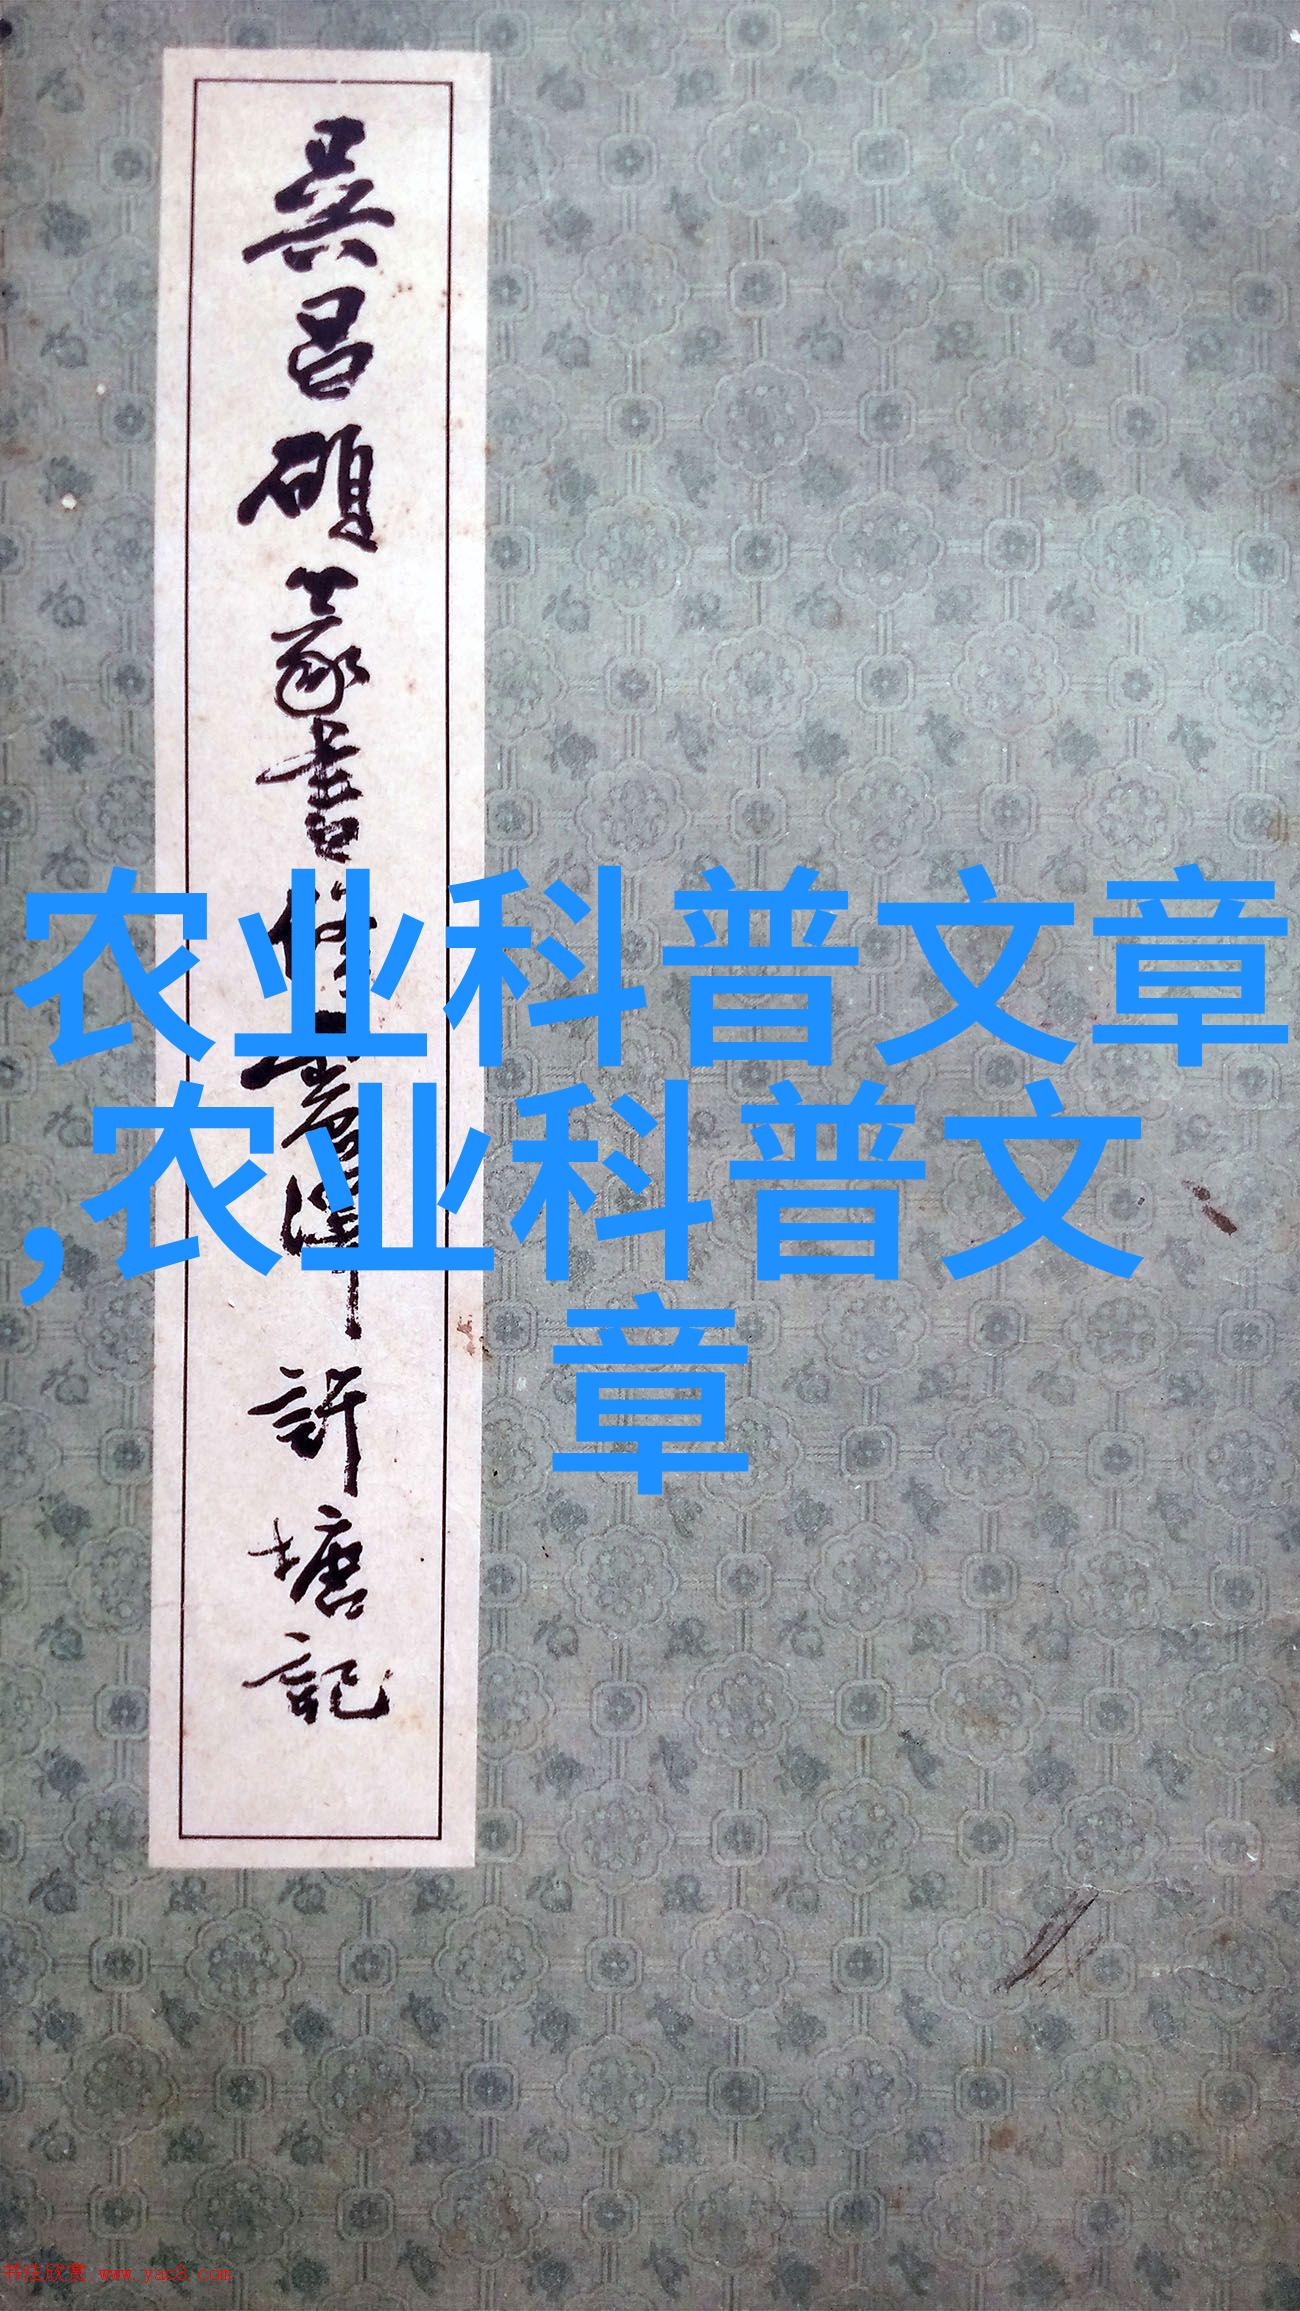 吳昌碩篆書修震澤許塘記
农业科普文章
,农业科普文
章
书法欣赏 www.yac8.com